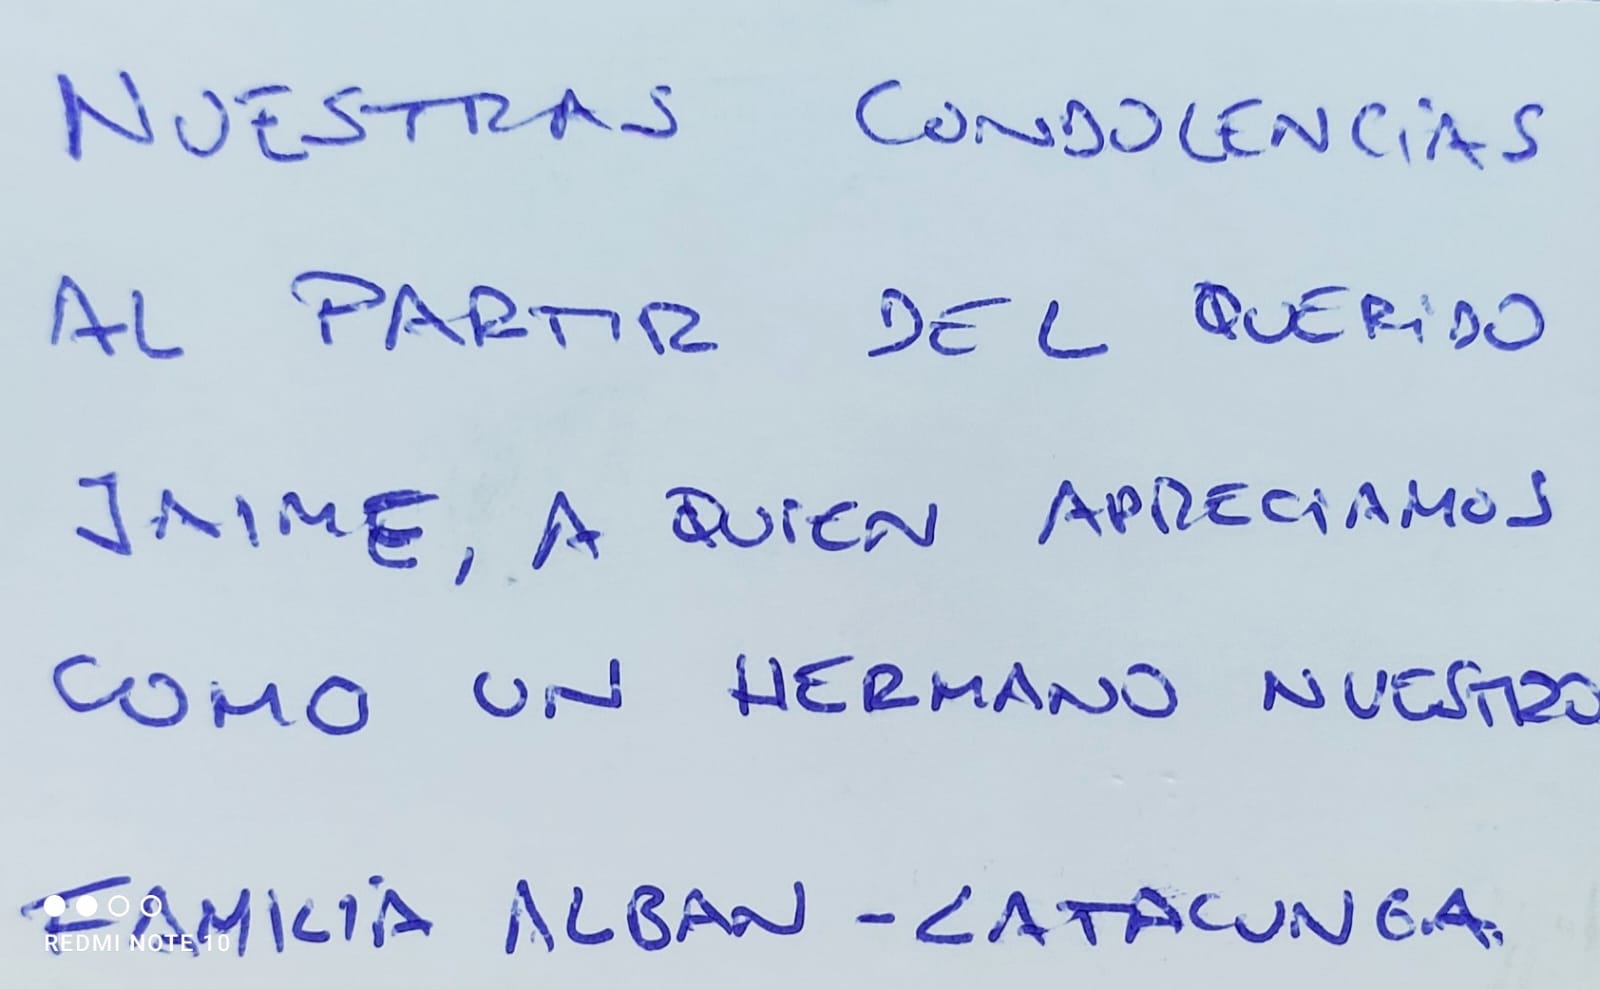 NUESTRAS CONDOLENCIAS
AL PARTIR DEL QUERIDO
JAIME, A QUIEN APRECIAMOS
COMO UN HERMANO NUESTRO
FAMILIA ALBAN - LATACUNGA.
REDMI NOTE 10